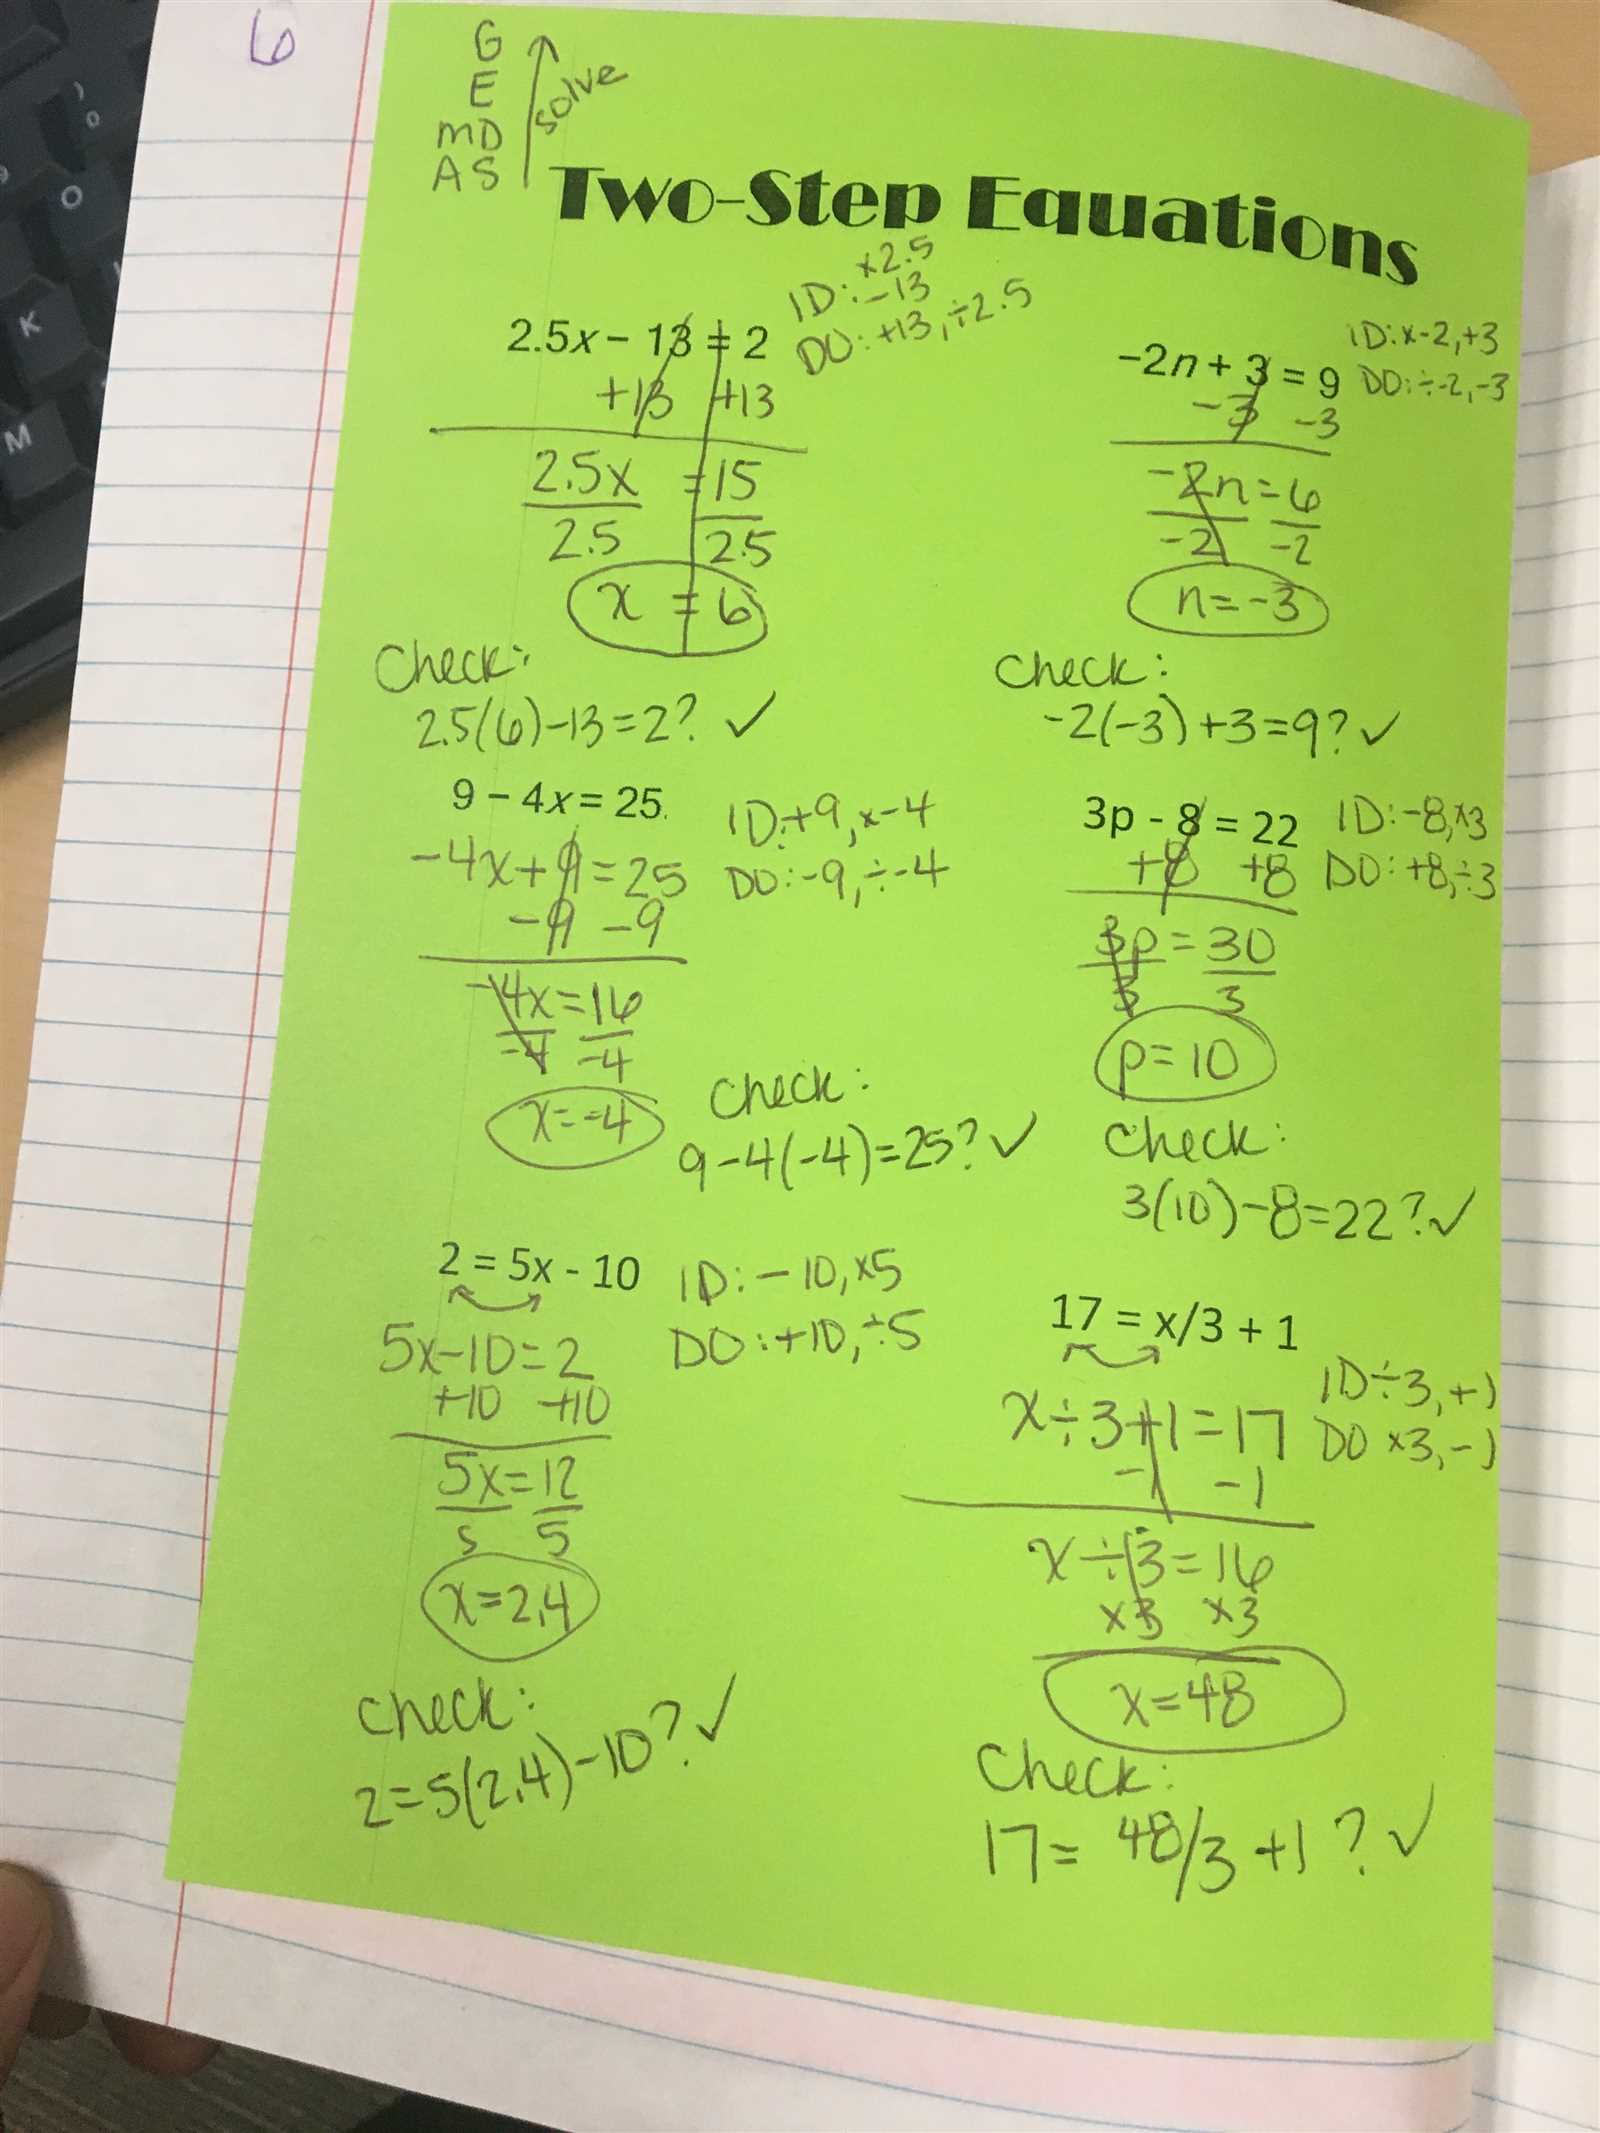 6
G
E
MD
AS
solve
Two-Step Equations
2.5x – 13 = 2
+13 +13
2.5x = 15
2.5 2.5
x = 6
ID: ×2.5
–13
DO: +13, ÷2.5
Check:
2.5(6)–13=2? ✓
–2n + 3 = 9
–3 –3
–2n = 6
–2 –2
n = –3
ID: x–2, +3
DO: ÷–2, –3
Check:
–2(–3)+3=9? ✓
9 – 4x = 25
–4x + 9 = 25
–9 –9
–4x = 16
–4 –4
x = –4
ID: +9, x–4
DO: –9, ÷–4
Check:
9–4(–4)=25? ✓
3p - 8 = 22
+8 +8
3p = 30
3 3
p = 10
ID: –8, ×3
DO: +8, ÷3
Check:
3(10)–8=22? ✓
2 = 5x - 10
5x–10=2
+10 +10
5x = 12
5 5
x = 2.4
ID: –10, ×5
DO: +10, ÷5
Check:
2=5(2.4)–10? ✓
17 = x/3 + 1
x÷3+1=17
–1 –1
x÷3=16
×3 ×3
x=48
ID ÷3, +1
DO ×3, –1
Check:
17= 48/3 +1? ✓
K
M
O